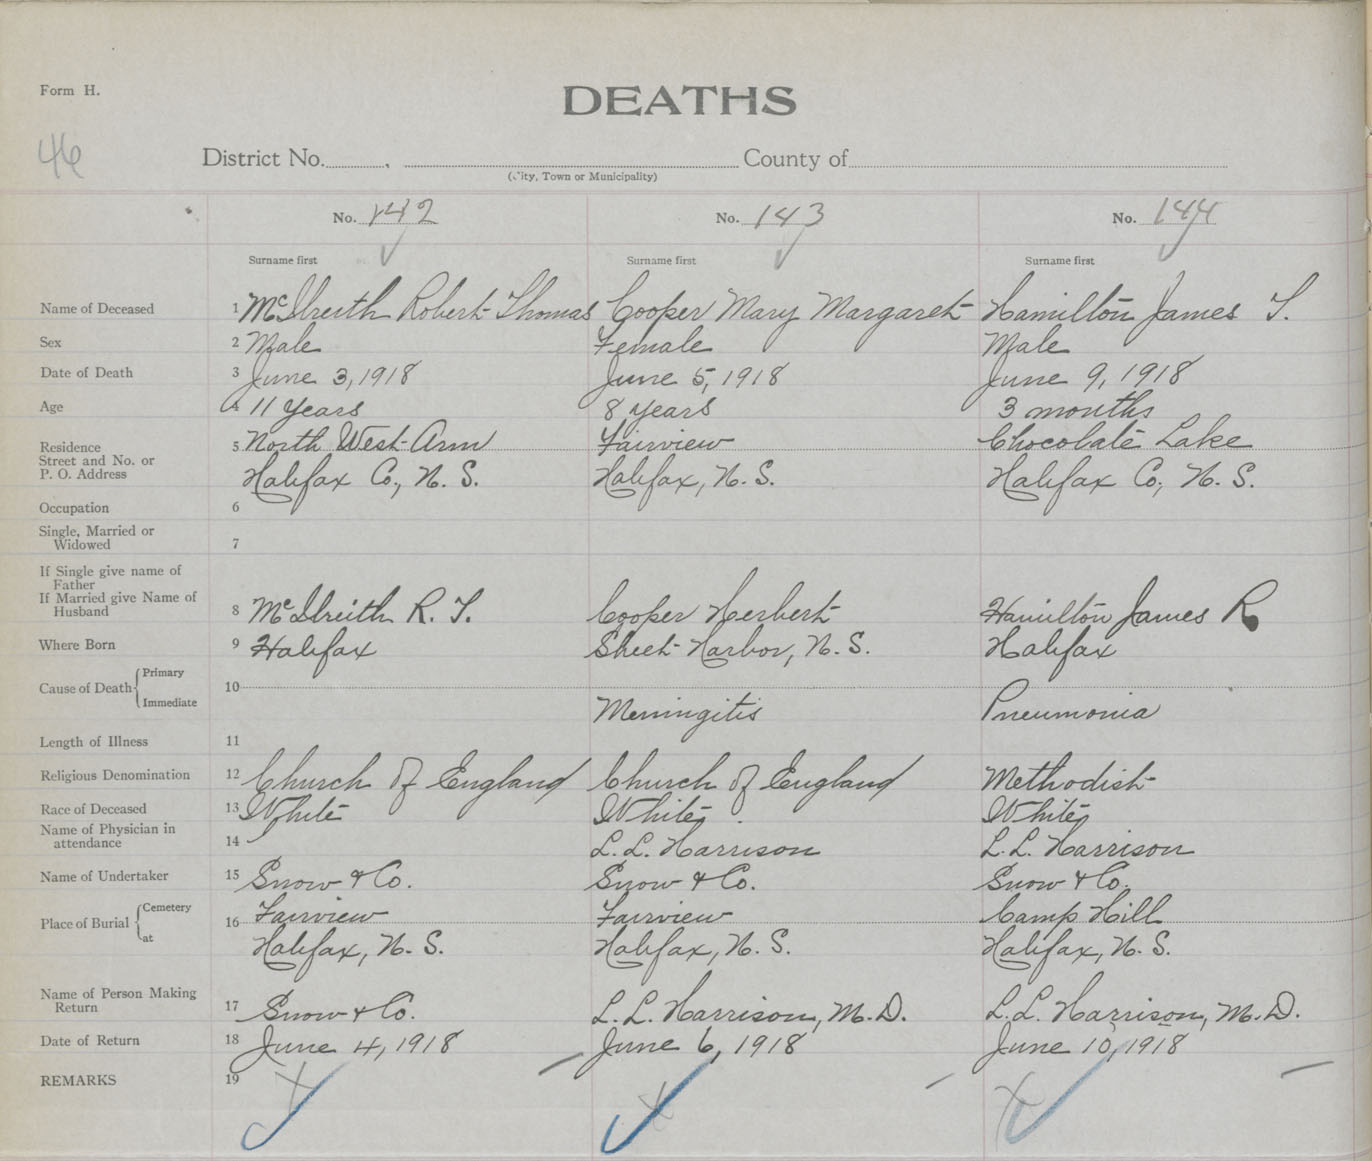 Form H.
DEATHS
46
District No. , County of
(City, Town or Municipality)
No. 142 No. 143 No. 144
Surname first Surname first Surname first
Name of Deceased 1 McIlreith Robert Thomas Cooper Mary Margaret Hamilton James T.
Sex 2 Male Female Male
Date of Death 3 June 3, 1918 June 5, 1918 June 9, 1918
Age 4 11 years 8 years 3 months
Residence 5 North West Arm Fairview Chocolate Lake
Street and No. or
P. O. Address Halifax Co., N. S. Halifax, N. S. Halifax Co., N. S.
Occupation 6
Single, Married or
Widowed 7
If Single give name of
Father
If Married give Name of
Husband 8 McIlreith R. T. Cooper Herbert Hamilton James R
Where Born 9 Halifax Sheet Harbor, N. S. Halifax
Cause of Death Primary 10
Immediate Meningitis Pneumonia
Length of Illness 11
Religious Denomination 12 Church of England Church of England Methodist
Race of Deceased 13 White White White
Name of Physician in
attendance 14 L. L. Harrison L. L. Harrison
Name of Undertaker 15 Snow & Co. Snow & Co. Snow & Co.
Place of Burial Cemetery 16 Fairview Fairview Camp Hill
at Halifax, N. S. Halifax, N. S. Halifax, N. S.
Name of Person Making
Return 17 Snow & Co. L. L. Harrison, M. D. L. L. Harrison, M. D.
Date of Return 18 June 4, 1918 June 6, 1918 June 10, 1918
REMARKS 19